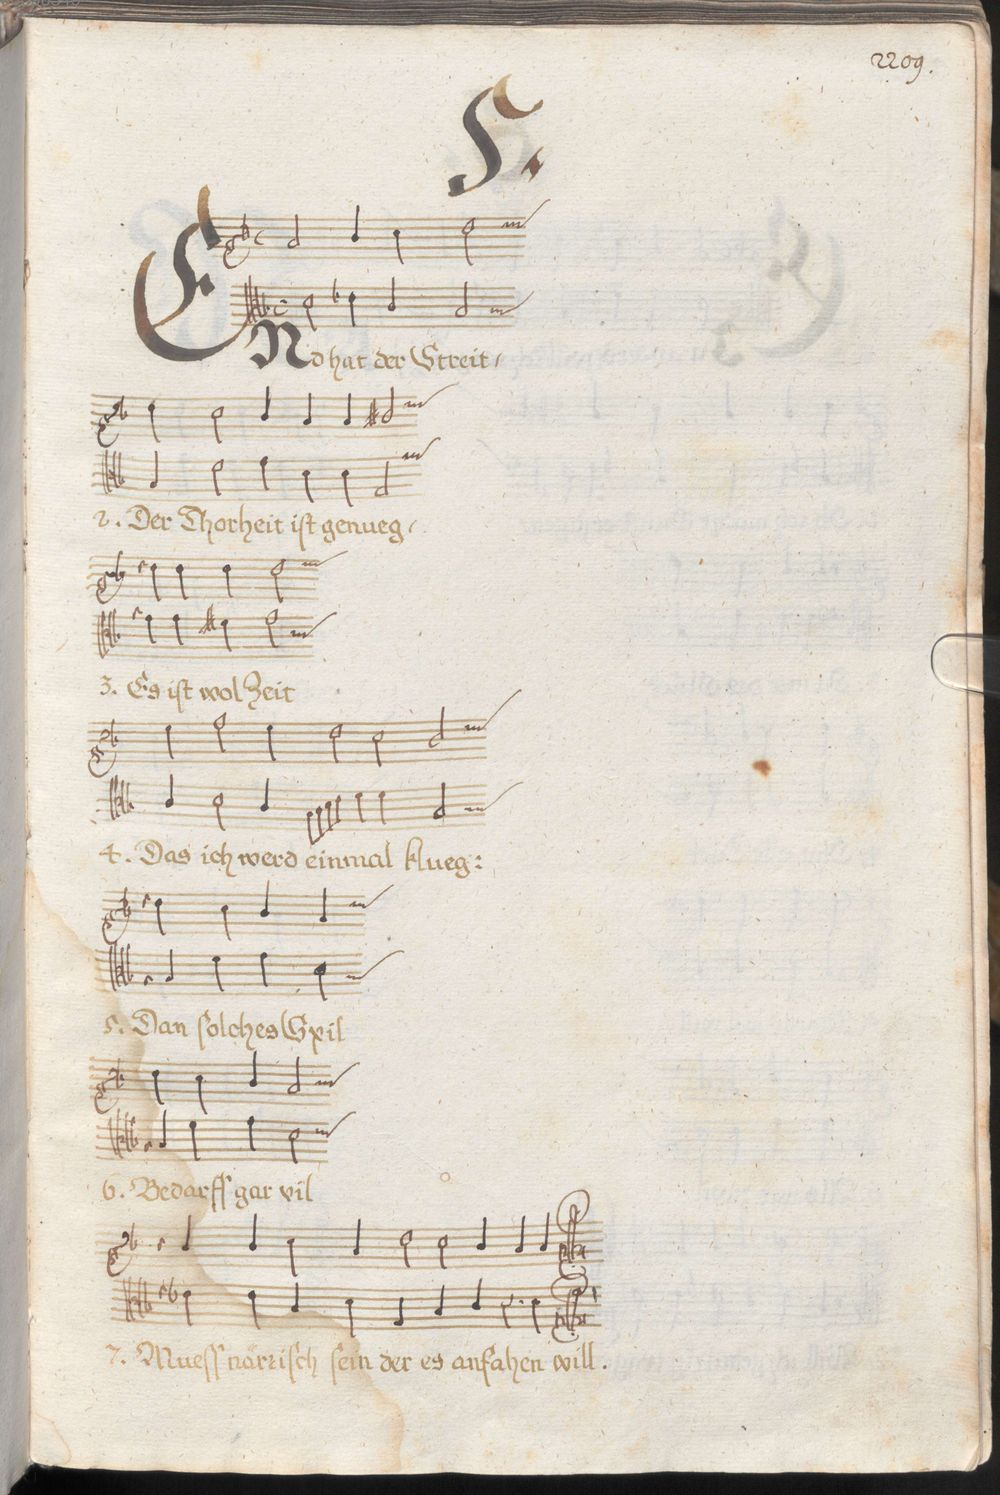 2209.
S.
ENd hat der Streit,
2. Der Thorheit ist genueg,
3. Es ist wol Zeit
4. Das ich werd einmal klueg:
5. Dan solches Spil
6. Bedarff gar vil
7. Muess närrisch sein der es anfahen will.